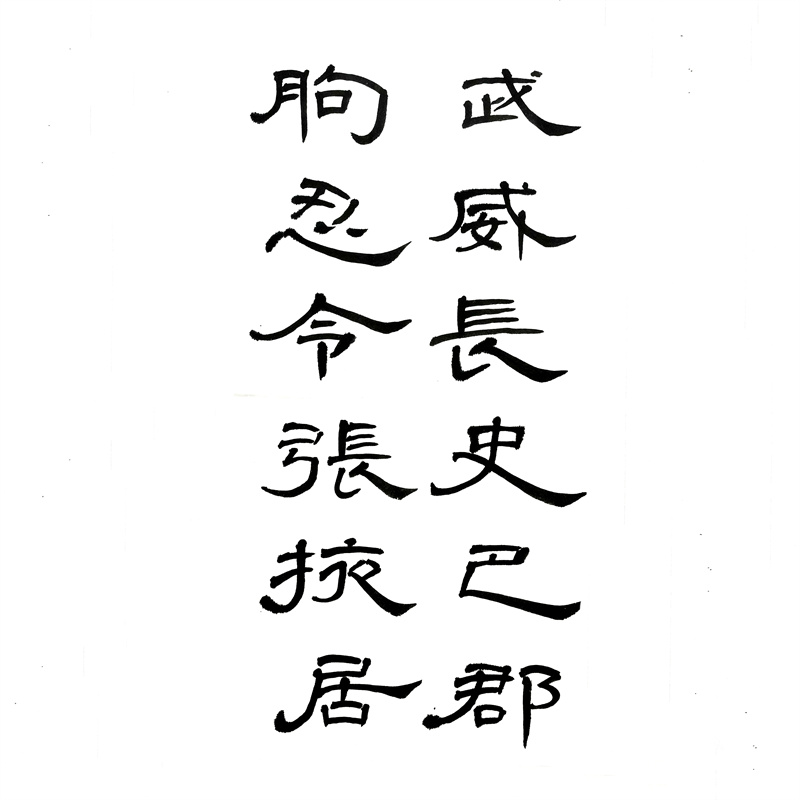 武威長史巴郡
朐忍令張掖居